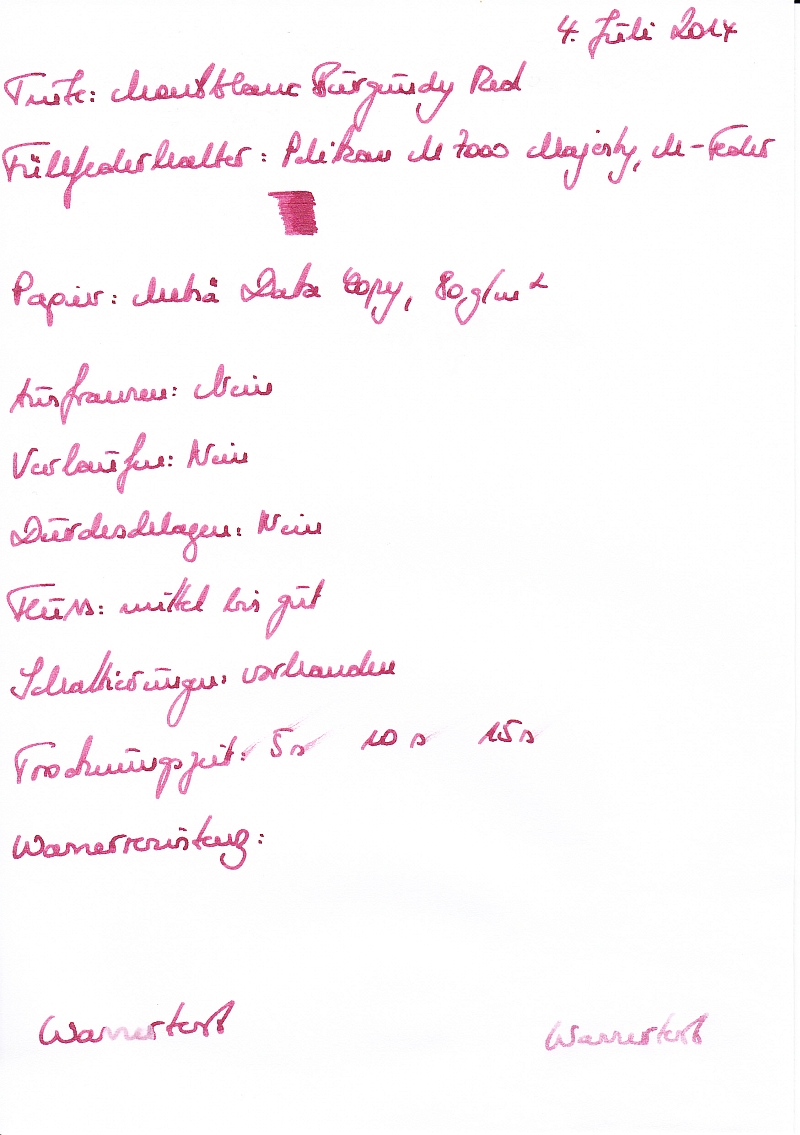 4. Juli 2014
Tinte: Montblanc Burgundy Red
Füllfederhalter: Pelikan M 7000 Majesty, M-Feder
Papier: Metsä Data Copy, 80 g/m²
Ausfransen: Nein
Verlaufen: Nein
Durchschlagen: Nein
Fluss: mittel bis gut
Schattierungen: vorhanden
Trocknungszeit: 5 s 10 s 15 s
Wasserresistenz:
Wassertest Wassertest